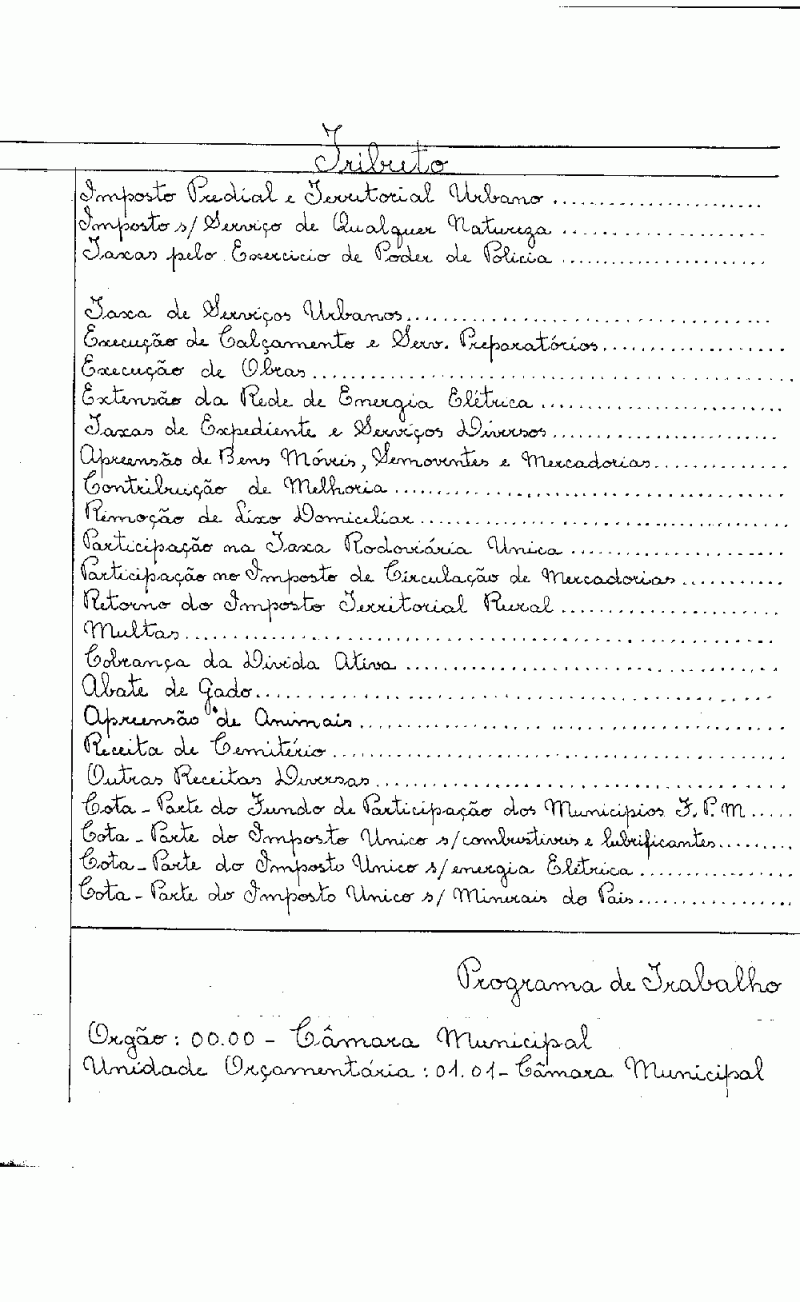 Tributo
Imposto Predial e Territorial Urbano .....................
Imposto s/ Serviço de Qualquer Natureza ...................
Taxas pelo Exercicio de Poder de Policia .....................
Taxa de Serviços Urbanos.....................................
Execução de Calçamento e Serv. Preparatórios...................
Execução de Obras.................................................
Extensão da Rede de Energia Elétrica .........................
Taxas de Expediente e Serviços Diversos.......................
Apreensão de Bens Móveis, Semoventes e Mercadorias..............
Contribuição de Melhoria.......................................
Remoção de Lixo Domiciliar.....................................
Participação na Taxa Rodoviária Unica ......................
Participação no Imposto de Circulação de Mercadorias ...........
Retorno do Imposto Territorial Rural ......................
Multas...........................................................
Cobrança da Divida Ativa .....................................
Abate de Gado....................................................
Apreensão de Animais...........................................
Receita de Cemitério.............................................
Outras Receitas Diversas.........................................
Cota - Parte do Fundo de Participação dos Municipios F.P.M .....
Cota - Parte do Imposto Unico s/combustiveis e lubrificantes........
Cota - Parte do Imposto Unico s/energia Elétrica ................
Cota - Parte do Imposto Unico s/ Minerais do Pais................
Programa de Trabalho
Orgão : 00.00 - Câmara Municipal
Unidade Orçamentária : 01.01 - Câmara Municipal